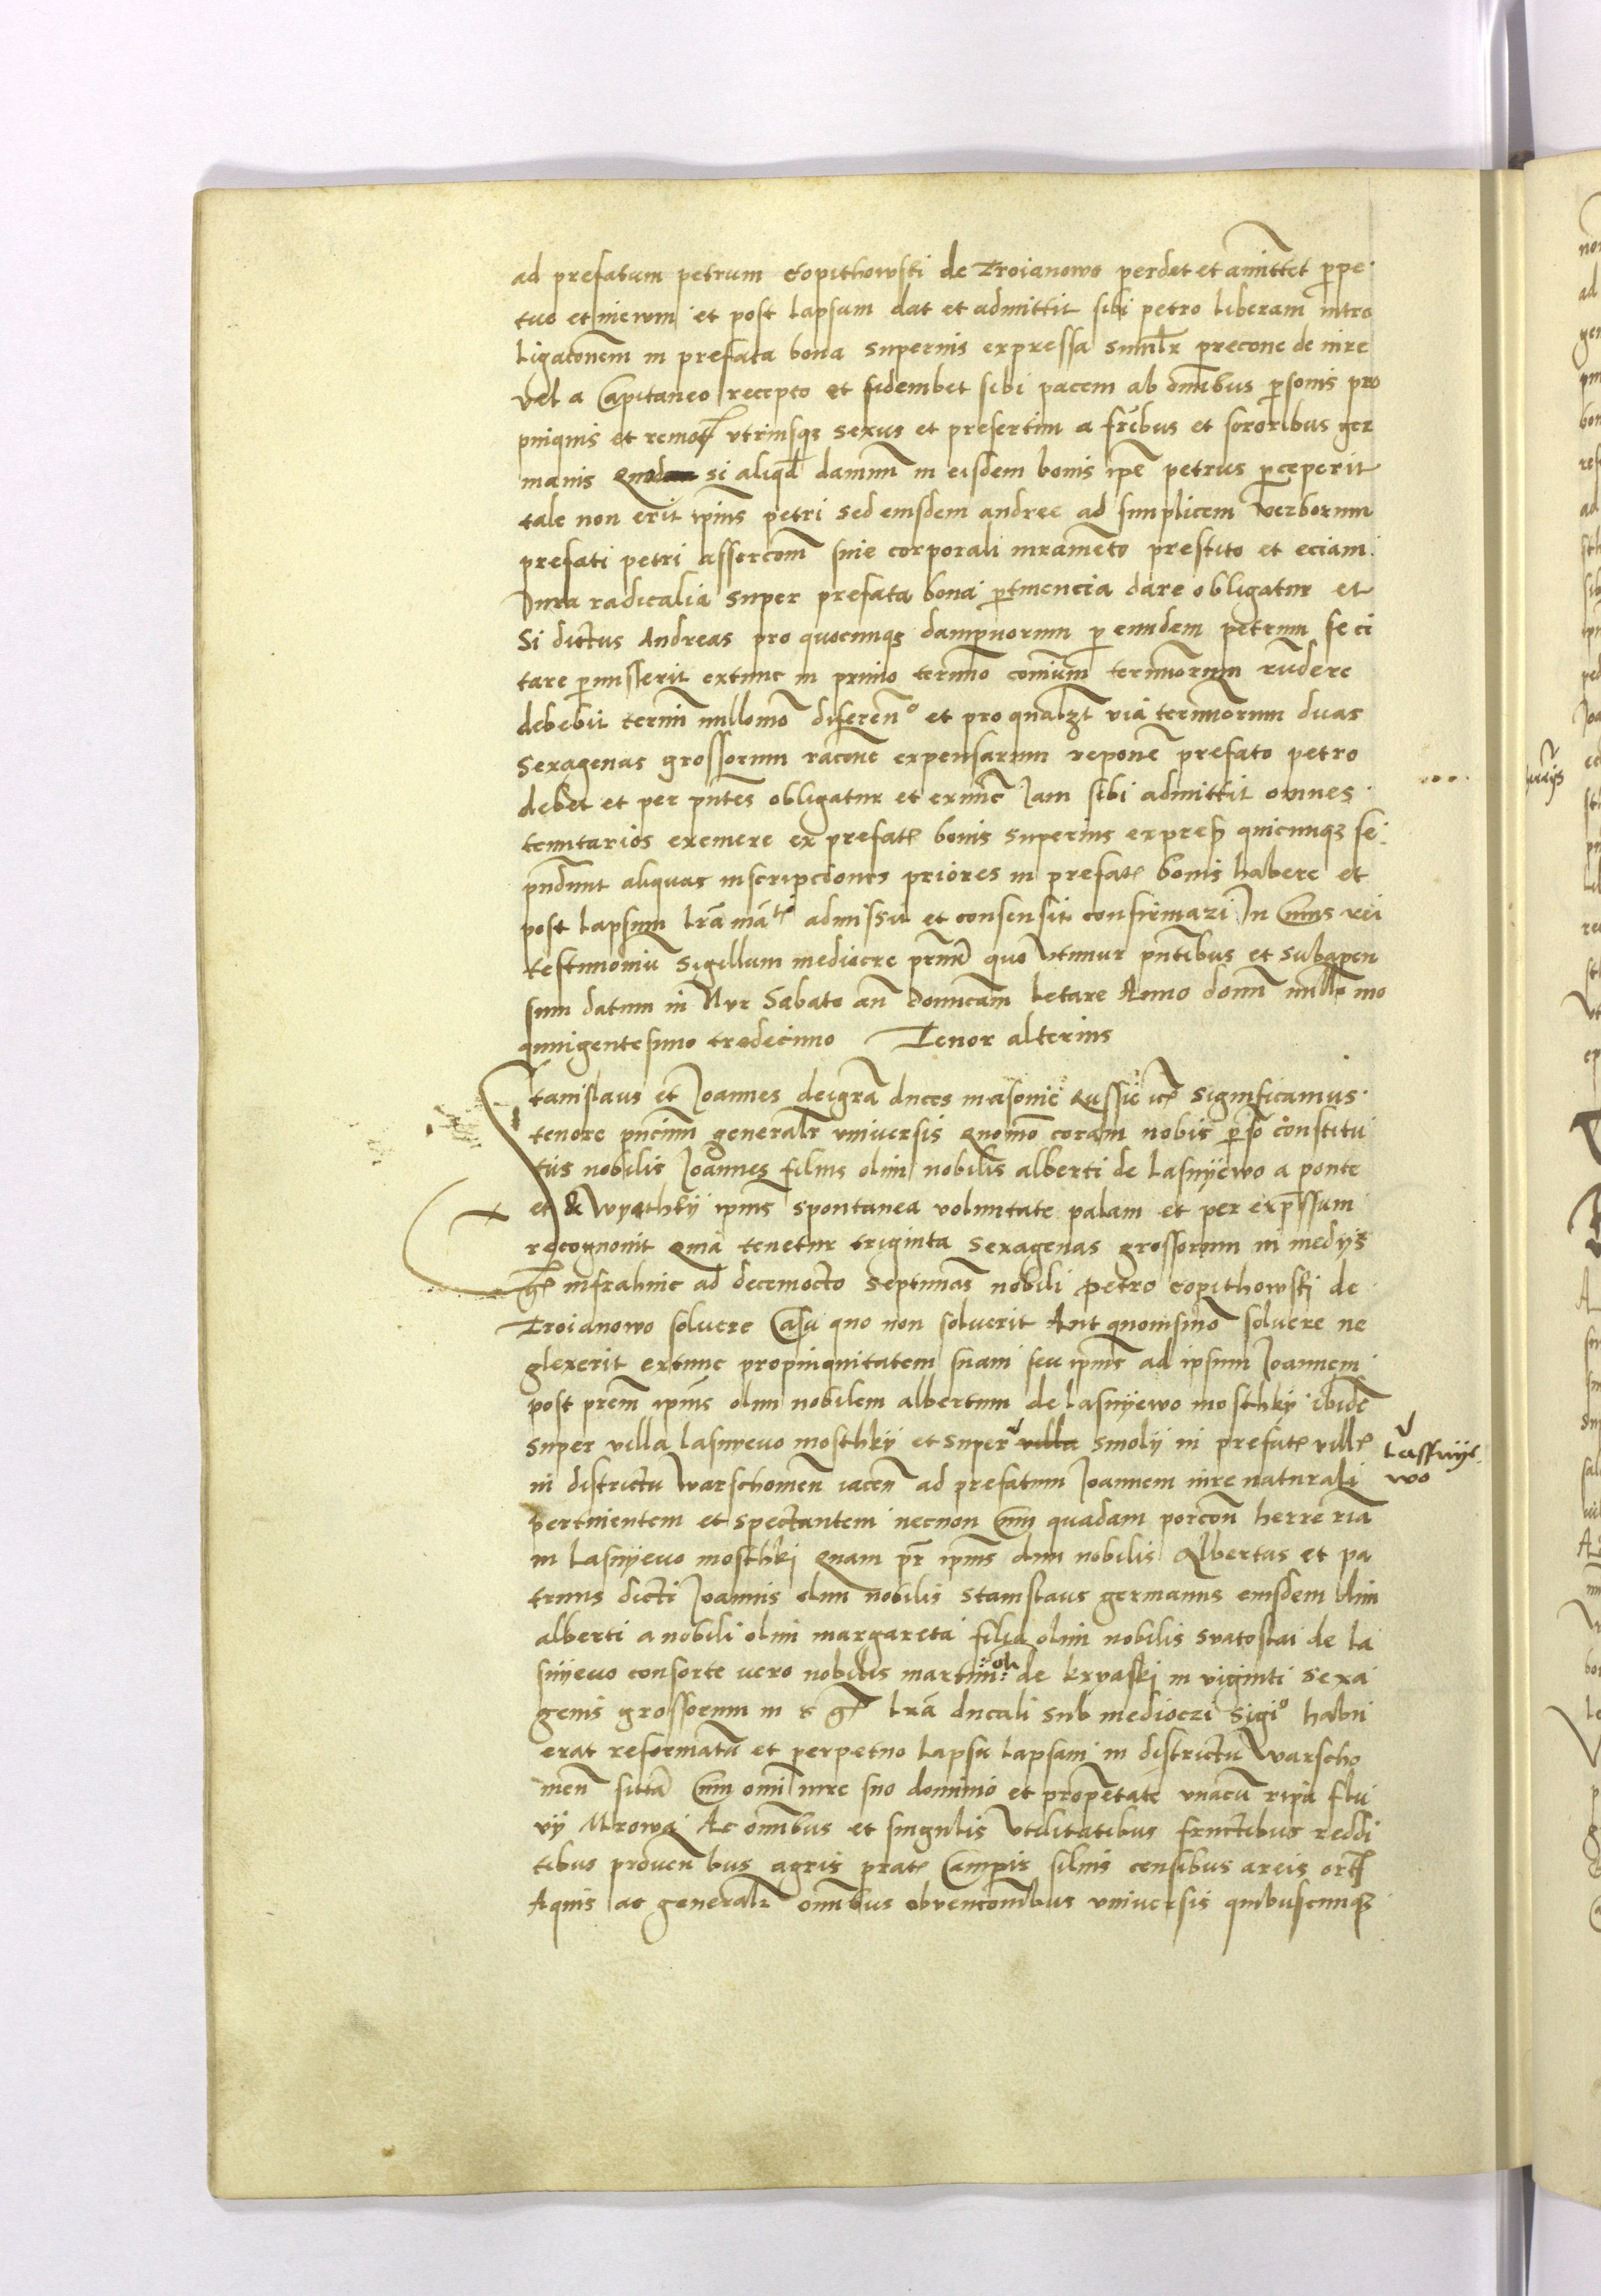 ad prefatum petrum copithowski de Troianowo perdet et amittet ꝑpe
tuo et in ewm et post Lapsum dat et admittit sibi petro liberam intro
Ligatonem in prefata bona superius expressa similr precone de iure
vel a Capitaneo recepto et fidembet sibi pacem ab omibus ꝑsonis pro
pinquis et remotꝭ vtriusqꝫ sexus et presertim a frībus et sororibus ger
manis si aliqd damnū in eisdem bonis ipē petrus ꝑceperit
tale non erit ipius petri sed eiusdem andree ad simplicem verborum
prefati petri assercom sine corporali iuramēto prestito et eciam
Iura radicalia super prefata bona ꝑtinencia dare obligatur et
Si dictus Andreas pro quocunqꝫ dampnorum ꝑ eundem petrum se ci
tare ꝑmisserit extunc in primo termino comium terminorum rndere
debebit termi nullomo diferen° et pro qualꝫt via terminorum duas
sexagenas grossorum racone expensarum repone prefato petro
debet et per pntes obligatur et exnūc Iam sibi admittit omnes
tenutarios exemere ex prefatꝭ bonis superius expreß quicunqꝫ se
pndunt aliquas inscripciones priores in prefatꝭ bonis habere et
post Lapsum admissit et consensit confirmari In Cuius rei
testimoniū Sigillum mediocre quo vtimur pntibus et subapen
sum datum in Nur Sabato an domicam Letare Anno domi millꝭmo
quingentesimo tredecimo Tenor alterius
Stanislaus et Ioannes dei gra duces masouie Russie ꝛcꝭ Significamus
tenore pncium generalr vniuersis Quomo coram nobis ꝑso constitu
tus nobilis Ioannes filius olim nobilis alberti de Lasnyewo a ponte
et & wyethky ipius spontanea voluntate palam et per expressum
recognouit Quia tenetur triginta sexagenas grossorum in medijs
gꝭ infrahinc ad decemocto septimas nobili petro copithowski de
Troianowo soluere Casu quo non soluerit Aut quouismo soluere ne
glexerit extunc propinquitatem suam seu ipius ad ipsum Ioannem
post prem ipius olim nobilem albertum de Lasnyewo mosthky ibide
super villa Lasnyeuo mosthky et super villa Smoly in prefatꝭ villꝭ
Lassnye
wo
in districtu warschouien iacen ad prefatum Ioannem iure naturali
pertinentem et spectantem necnon Cum quadam porcon
in Lasnyeuo mosthki Quam pr ipius olim nobilis Albertus et pa
truus dicti Ioannis olim nobilis Stanislaus germanus eiusdem olim
alberti a nobili olim margareta filia olim nobilis svatoslai de La
snyeuo consorte vero nobilis martini oli de kryaski in viginti sexa
genis grossorum in s gꝭ Lra ducali sub medioczi sigi° habu
erat reformatā et perpetuo Lapsu Lapsam in districtu warscho
uien sittā Cum omi iure suo dominio et propetate vnacū ripa flu
vij Mrowa Ac omibus et singulis vtilitatibus fructibus reddi
tibus prouenbus agris pratꝭ Campis siluis censibus areis ortꝭ
Aquis ac generalr omibus obuencomibus vniuersis quibuscunqꝫ